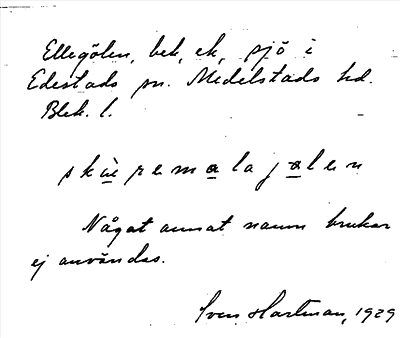 Ellegölen, bek, ek, sjö i
Edestads sn. Medelstads hd.
Blek. l.
skæ̀remalajølen
Något annat namn brukar
ej användas.
Sven Hartman, 1929